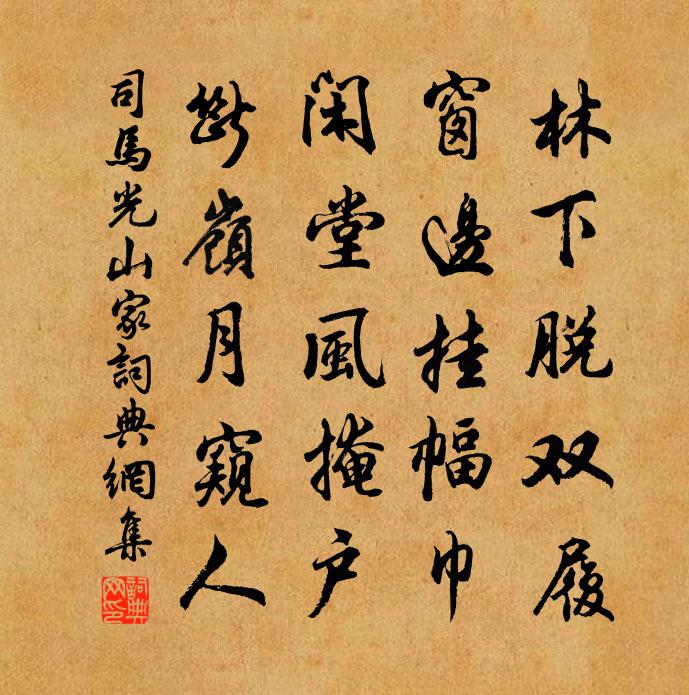 林下脱双履
窗邊挂幅巾
閑堂風掩户
斷嶺月窺人
司馬光山家詞典網集
詞典网印